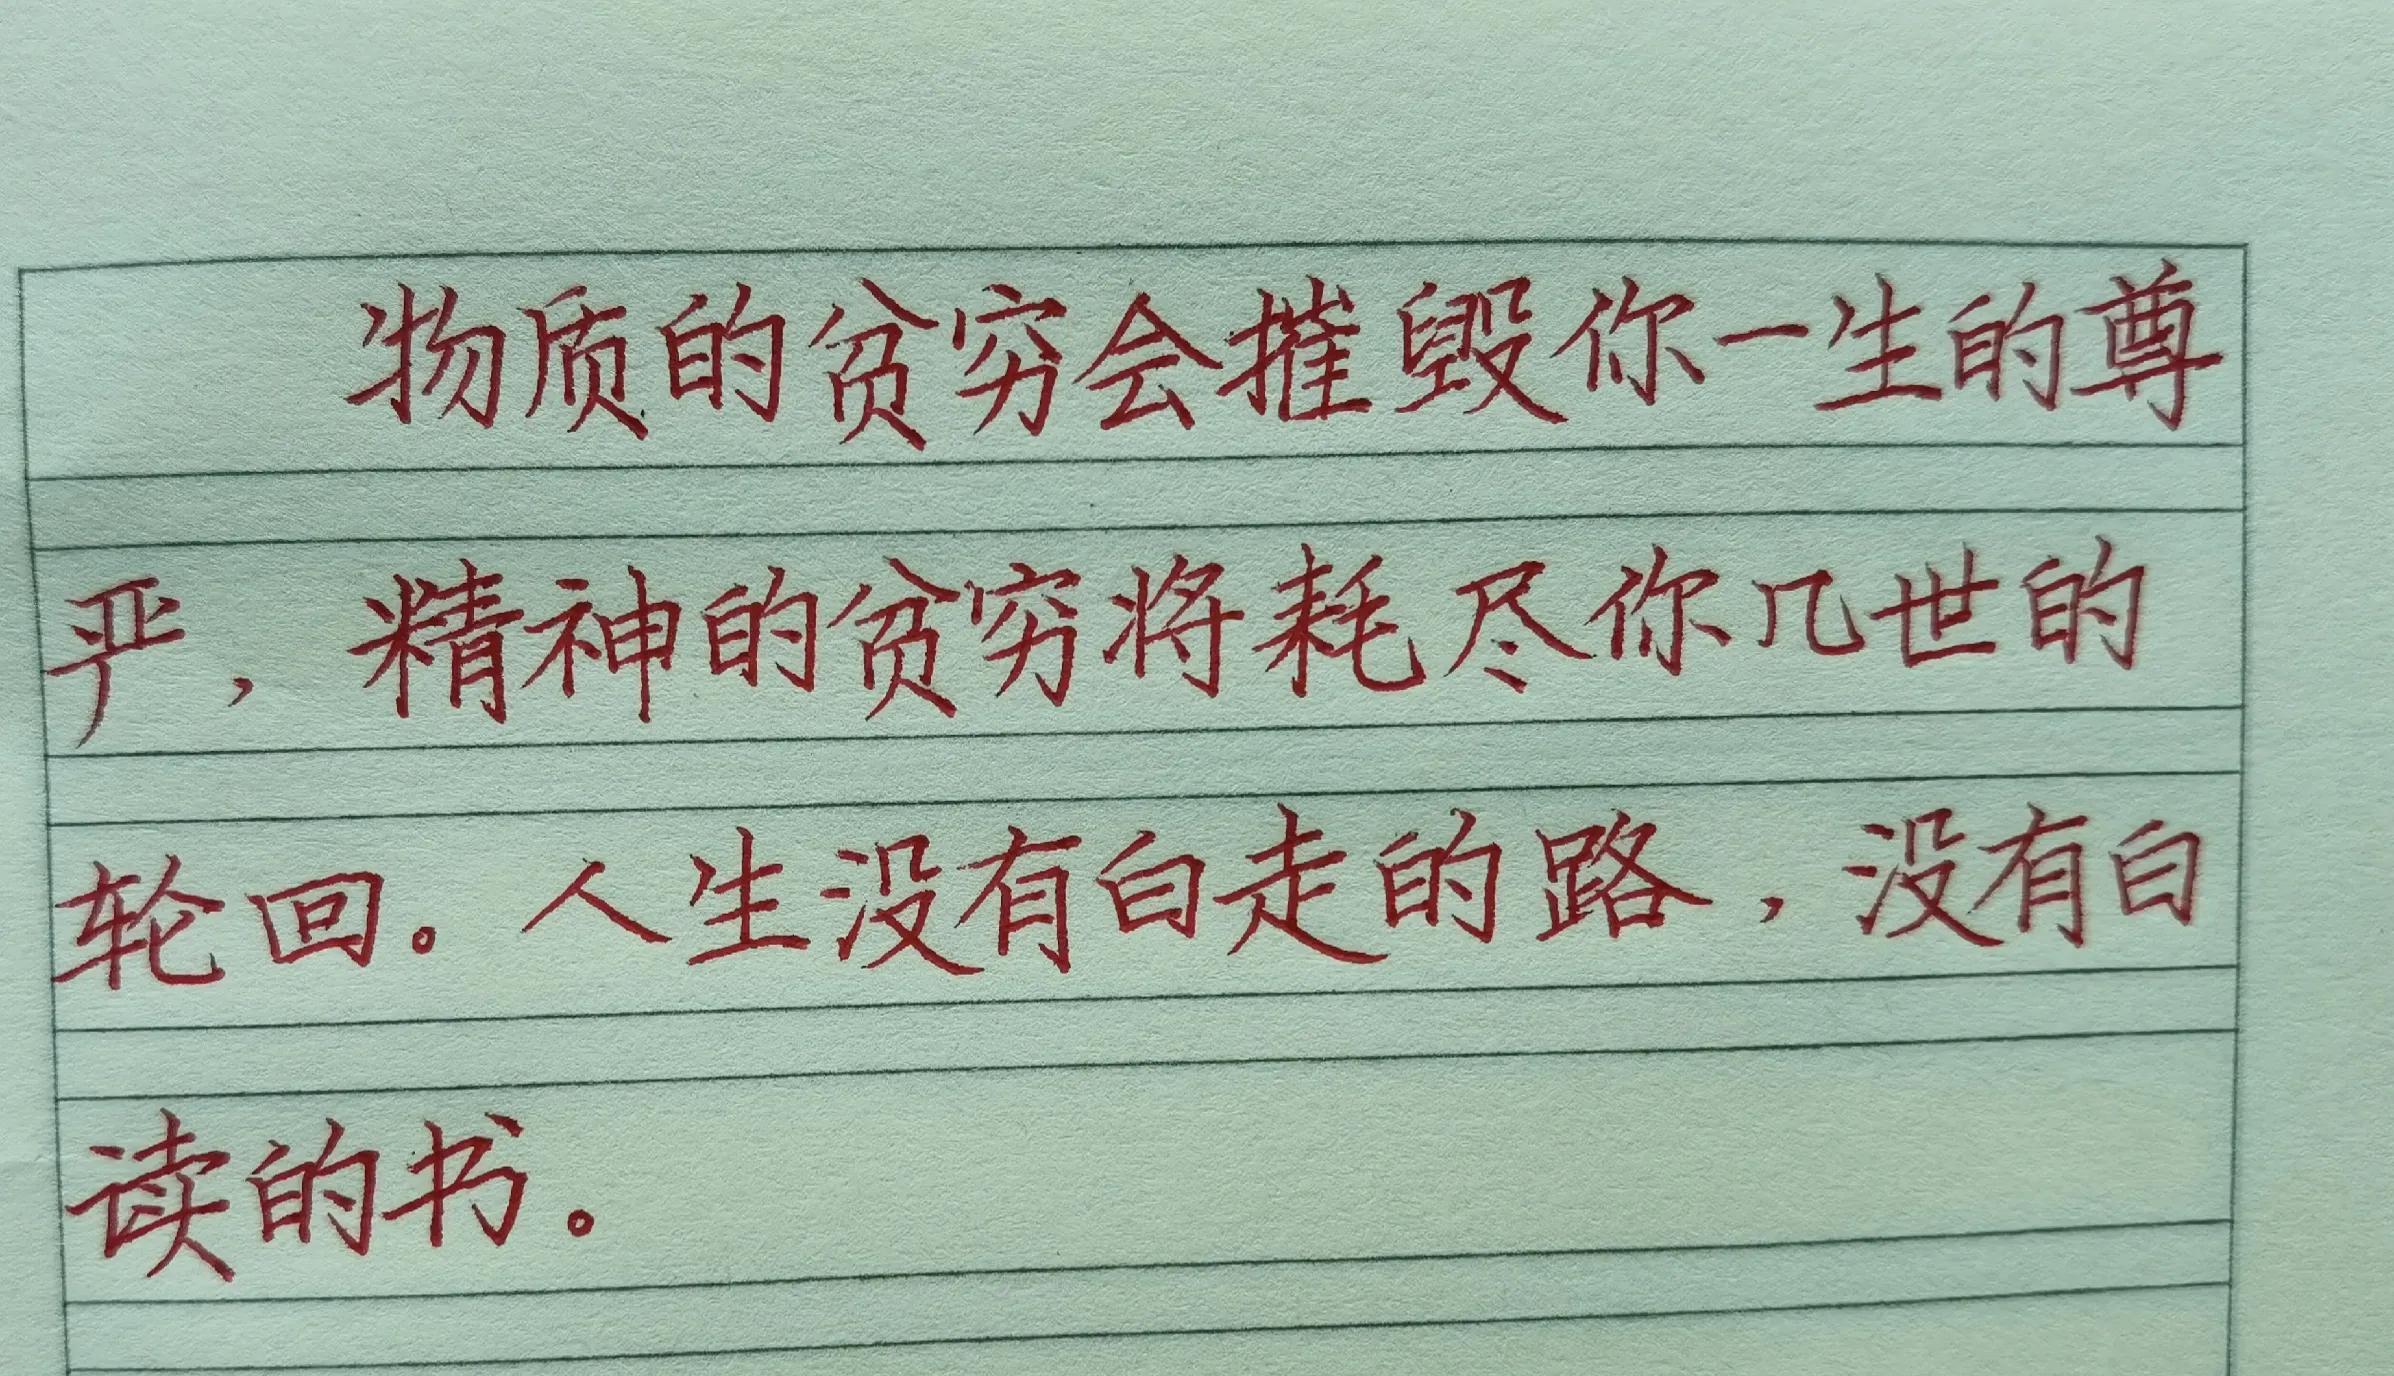 物质的贫穷会摧毁你一生的尊
严，精神的贫穷将耗尽你几世的
轮回。人生没有白走的路，没有白
读的书。